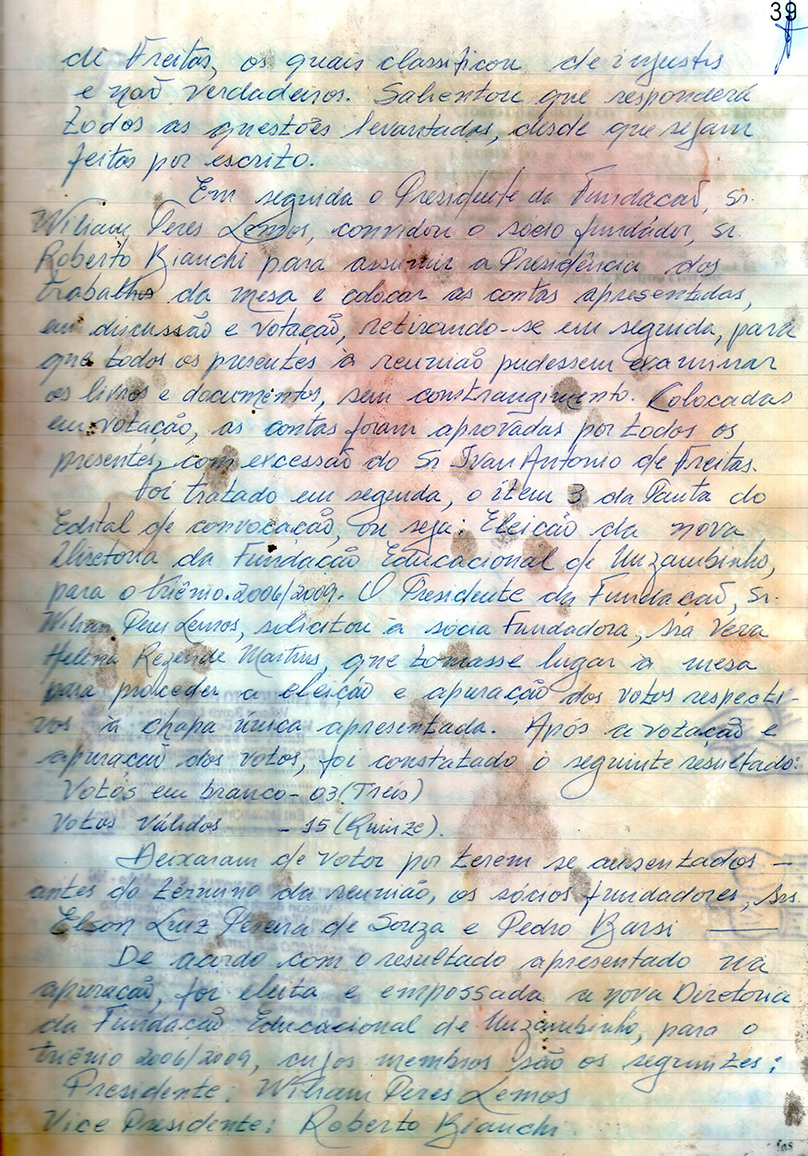 39
de Freitas, os quais classificou de injustos
e não verdadeiros. Salientou que responderá
todos as questões levantadas, desde que sejam
feitas por escrito.
Em seguida o Presidente da Fundação, Sr.
Wiliam Peres Lemos, convidou o sócio fundador, Sr.
Roberto Bianchi para assumir a Presidência dos
trabalhos da mesa e colocar as contas apresentadas,
em discussão e votação, retirando-se em seguida, para
que todos os presentes à reunião pudessem examinar
os livros e documentos, sem constrangimento. Colocadas
em votação, as contas foram aprovadas por todos os
presentes, com excessão do Sr Ivan Antonio de Freitas.
Foi tratado em seguida, o ítem 3 da Pauta do
Edital de convocação, ou seja: Eleição da nova
Diretoria da Fundação Educacional de Muzambinho,
para o triênio.2006/2009. O Presidente da Fundação, Sr.
Wiliam Peres Lemos, solicitou à sócia Fundadora, Sra Vera
Helena Rezende Martins, que tomasse lugar à mesa
para proceder a eleição e apuração dos votos respecti-
vos à chapa única apresentada. Após a votação e
apuração dos votos, foi constatado o seguinte resultado:
Votos em branco - 03 (Treis)
Votos Válidos - 15 (Quinze).
Deixaram de votar por terem se ausentados -
antes do término da reunião, os sócios fundadores, Srs.
Elson Luiz Pereira de Souza e Pedro Barsi
De acordo com o resultado apresentado na
apuração, foi eleita e empossada a nova Diretoria
da Fundação Educacional de Muzambinho, para o
triênio 2006/2009, cujos membros são os seguintes:
Presidente: Wiliam Peres Lemos
Vice Presidente: Roberto Bianchi